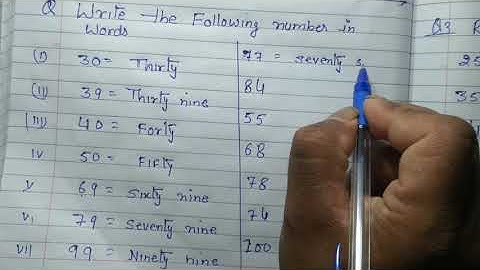 Q Write the Following number in
words
(i) 30 = Thirty
(ii) 39 = Thirty nine
(iii) 40 = Forty
iv 50 = Fifty
v 69 = Sixty nine
vi 79 = Seventy nine
vii 99 = Ninety nine
77 = seventy s
84
55
68
78
74
100
Q3 R
25
35